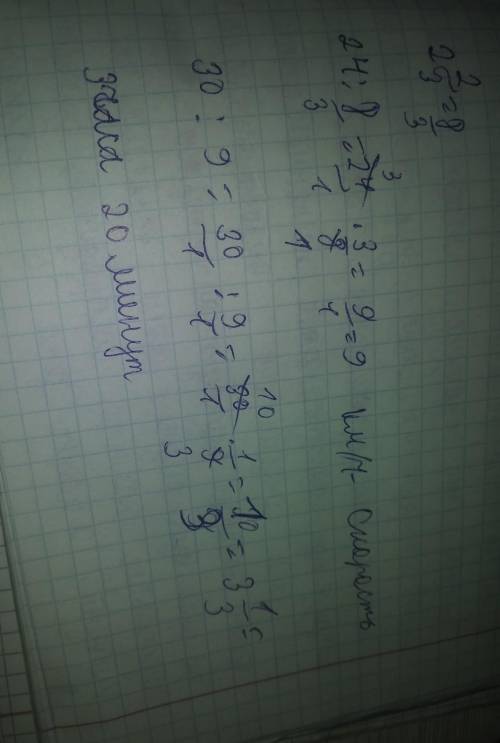 2 2/3 = 8/3
24 : 8/3 = 24/1 · 3/8 = 9/1 = 9 км/ч- Скорость
30 : 9 = 30/1 : 9/1 = 30/1 · 1/9 = 10/3 = 3 1/3 =
3 часа 20 минут